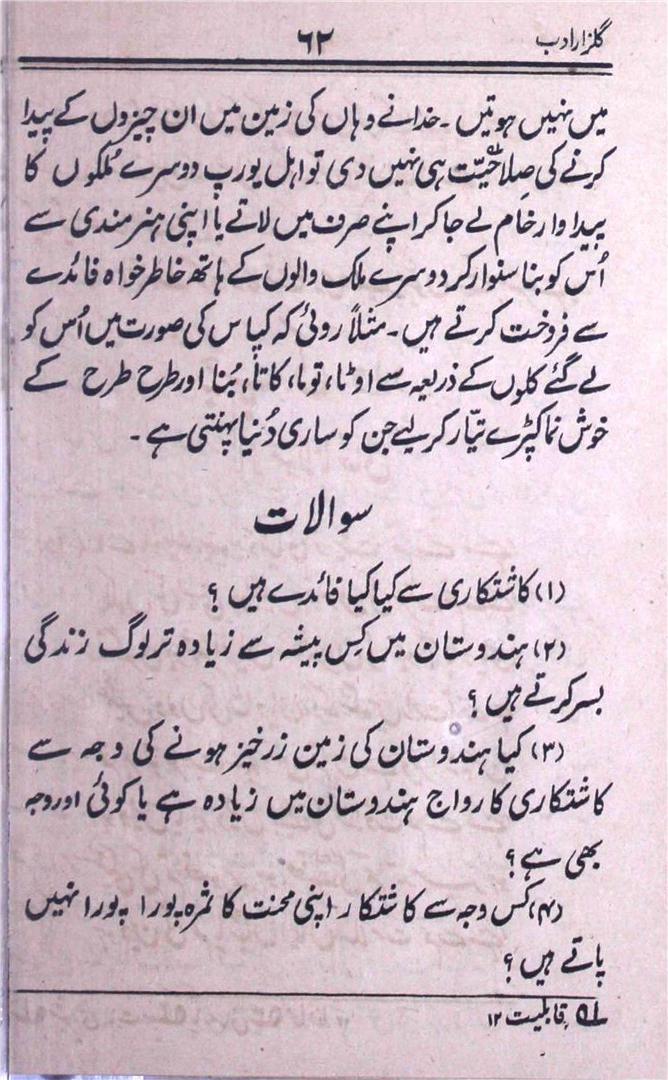 گلزار ادب ۶۲
میں نہیں ہوتیں۔ خدا نے وہاں کی زمین میں ان چیزوں کے پیدا
کرنے کی صلاحیّت ہی نہیں دی تو اہل یورپ دوسرے مُلکوں کا
پیداوار خام لے جا کر اپنے صرف میں لاتے یا اپنی ہنرمندی سے
اُس کو بنا سنوار کر دوسرے ملک والوں کے ہاتھ خاطر خواہ فائدے
سے فروخت کرتے ہیں۔ مثلاً روئی کہ کپاس کی صورت میں اُس کو
لے گئے کلوں کے ذریعہ سے اوٹا، توما، کاتا، بُنا اور طرح طرح کے
خوش نما کپڑے تیّار کر لیے جن کو ساری دُنیا پہنتی ہے۔
سوالات
(۱) کاشتکاری سے کیا کیا فائدے ہیں؟
(۲) ہندوستان میں کِس پیشہ سے زیادہ تر لوگ زندگی
بسر کرتے ہیں؟
(۳) کیا ہندوستان کی زمین زرخیز ہونے کی وجہ سے
کاشتکاری کا رواج ہندوستان میں زیادہ ہے یا کوئی اور وجہ
بھی ہے؟
(۴) کس وجہ سے کاشتکار اپنی محنت کا ثمرہ پورا پورا نہیں
پاتے ہیں؟
قابلیت ۱۲